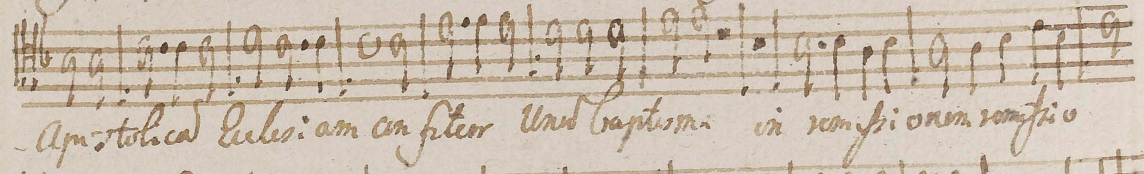 Apostolicā Ecclesiam confiteor Unū baptisma in remissionem remissio